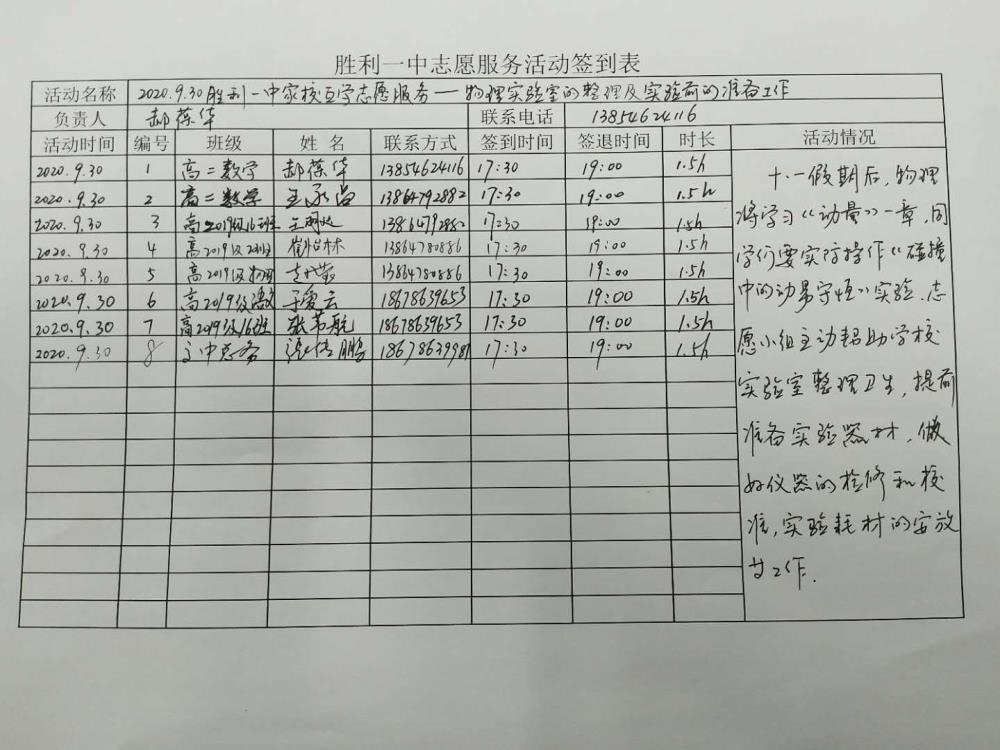 胜利一中志愿服务活动签到表
活动名称 2020.9.30胜利一中家校互学志愿服务—物理实验室的整理及实验前的准备工作
负责人 郝葆华 联系电话 13854624116
活动时间 编号 班级 姓名 联系方式 签到时间 签退时间 时长 活动情况
2020.9.30 1 高二数学 郝葆华 13854624116 17:30 19:00 1.5h
2020.9.30 2 高二数学 王永昌 13864792882 17:30 19:00 1.5h
2020.9.30 3 高2019级16班 13864792882 17:30 19:00 1.5h
2020.9.30 4 高2019级 13864780886 17:30 19:00 1.5h
2020.9.30 5 高2019级 13864780886 17:30 19:00 1.5h
2020.9.30 6 高2019级 于爱云 18678639653 17:30 19:00 1.5h
2020.9.30 7 高2019级16班 张芾航 18678639653 17:30 19:00 1.5h
2020.9.30 8 鹏 18678639981 17:30 19:00 1.5h
十.一假期后,物理
将学习《动量》一章,同
学们要实际操作《碰撞
中的动量守恒》实验.志
愿小组主动帮助学校
实验室整理卫生,提前
准备实验器材,做
好仪器的检修和校
准,实验耗材的安放
等工作.